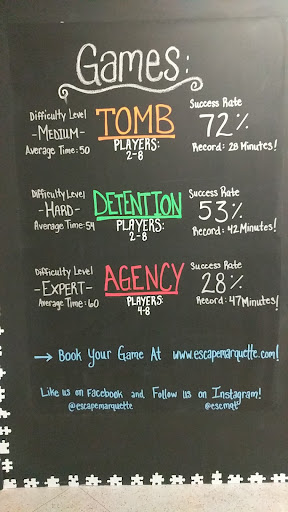 Games:
Difficulty Level
-Medium-
Average Time: 50
TOMB
PLAYERS:
2-8
Success Rate
72%
Record: 28 Minutes!
Difficulty Level
-Hard-
Average Time: 54
DETENTION
PLAYERS:
2-8
Success Rate
53%
Record: 42 Minutes!
Difficulty Level
-Expert-
Average Time: 60
AGENCY
PLAYERS:
4-8
Success Rate
28%
Record: 47 Minutes!
→ Book Your Game At www.escapemarquette.com!
Like us on Facebook and Follow us on Instagram!
@escapemarquette @escmqt